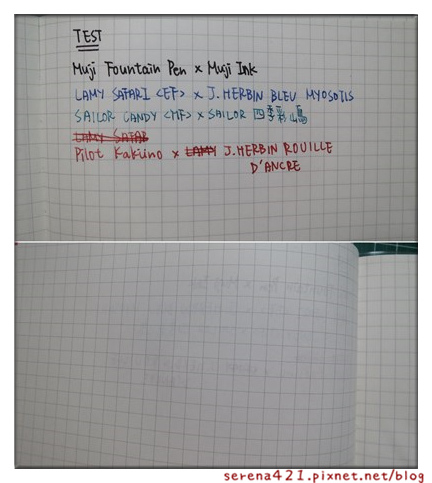 TEST
Muji Fountain Pen x Muji Ink
LAMY SAFARI <EF> x J.HERBIN BLEU MYOSOTIS
SAILOR CANDY <MF> x SAILOR 四季彩 嶋
LAMY SAFAR
Pilot Kakuno x LAMY J.HERBIN ROUILLE
D'ANCRE
serena421.pixnet.net/blog